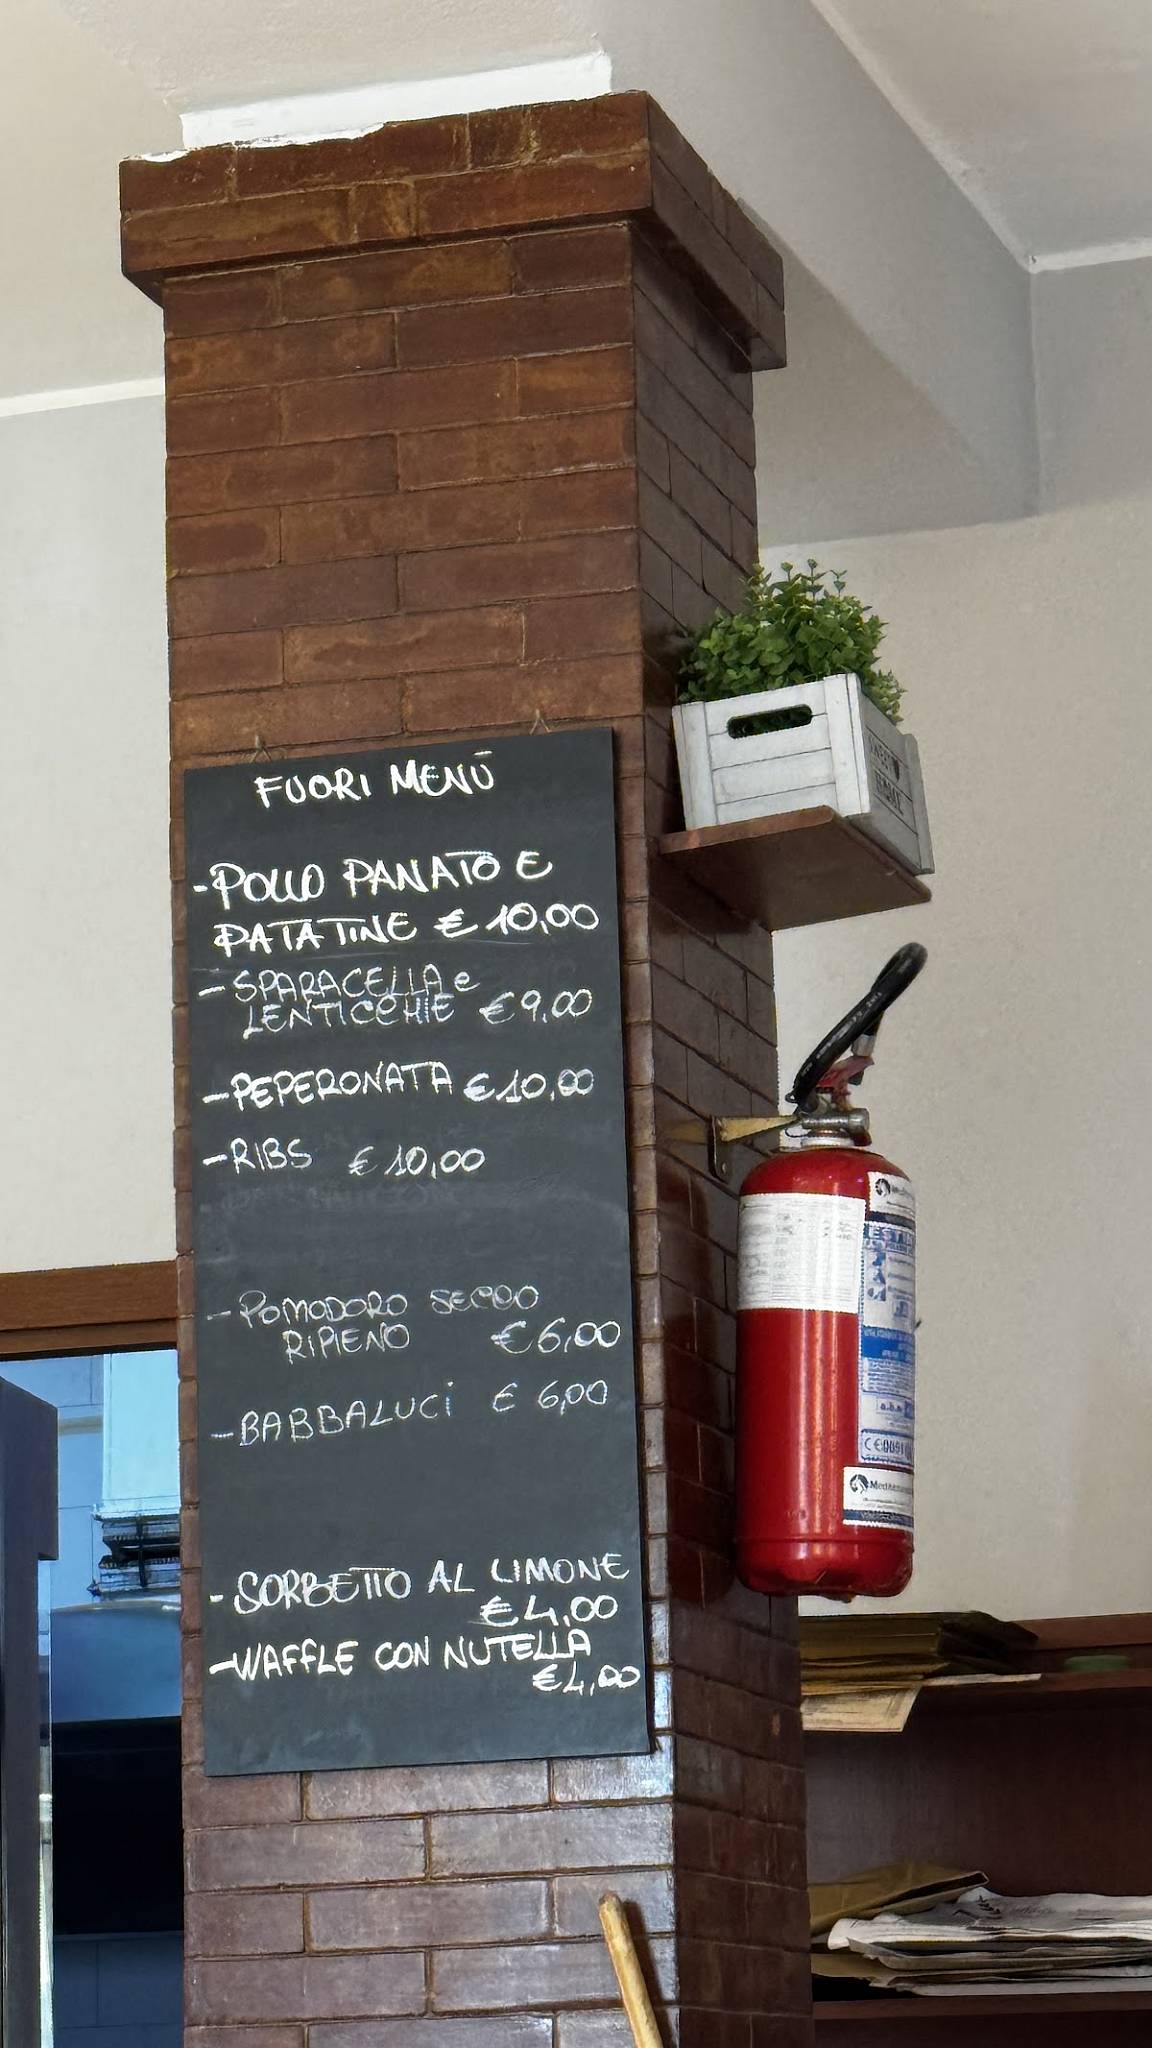 FUORI MENÙ
-POLLO PANATO E
PATATINE € 10,00
-SPARACELLA e
LENTICCHIE € 9,00
-PEPERONATA € 10,00
-RIBS € 10,00
-POMODORO SECCO
RIPIENO € 6,00
-BABBALUCi € 6,00
-SORBETTO AL LIMONE
€ 4,00
-WAFFLE CON NUTELLA
€ 4,00